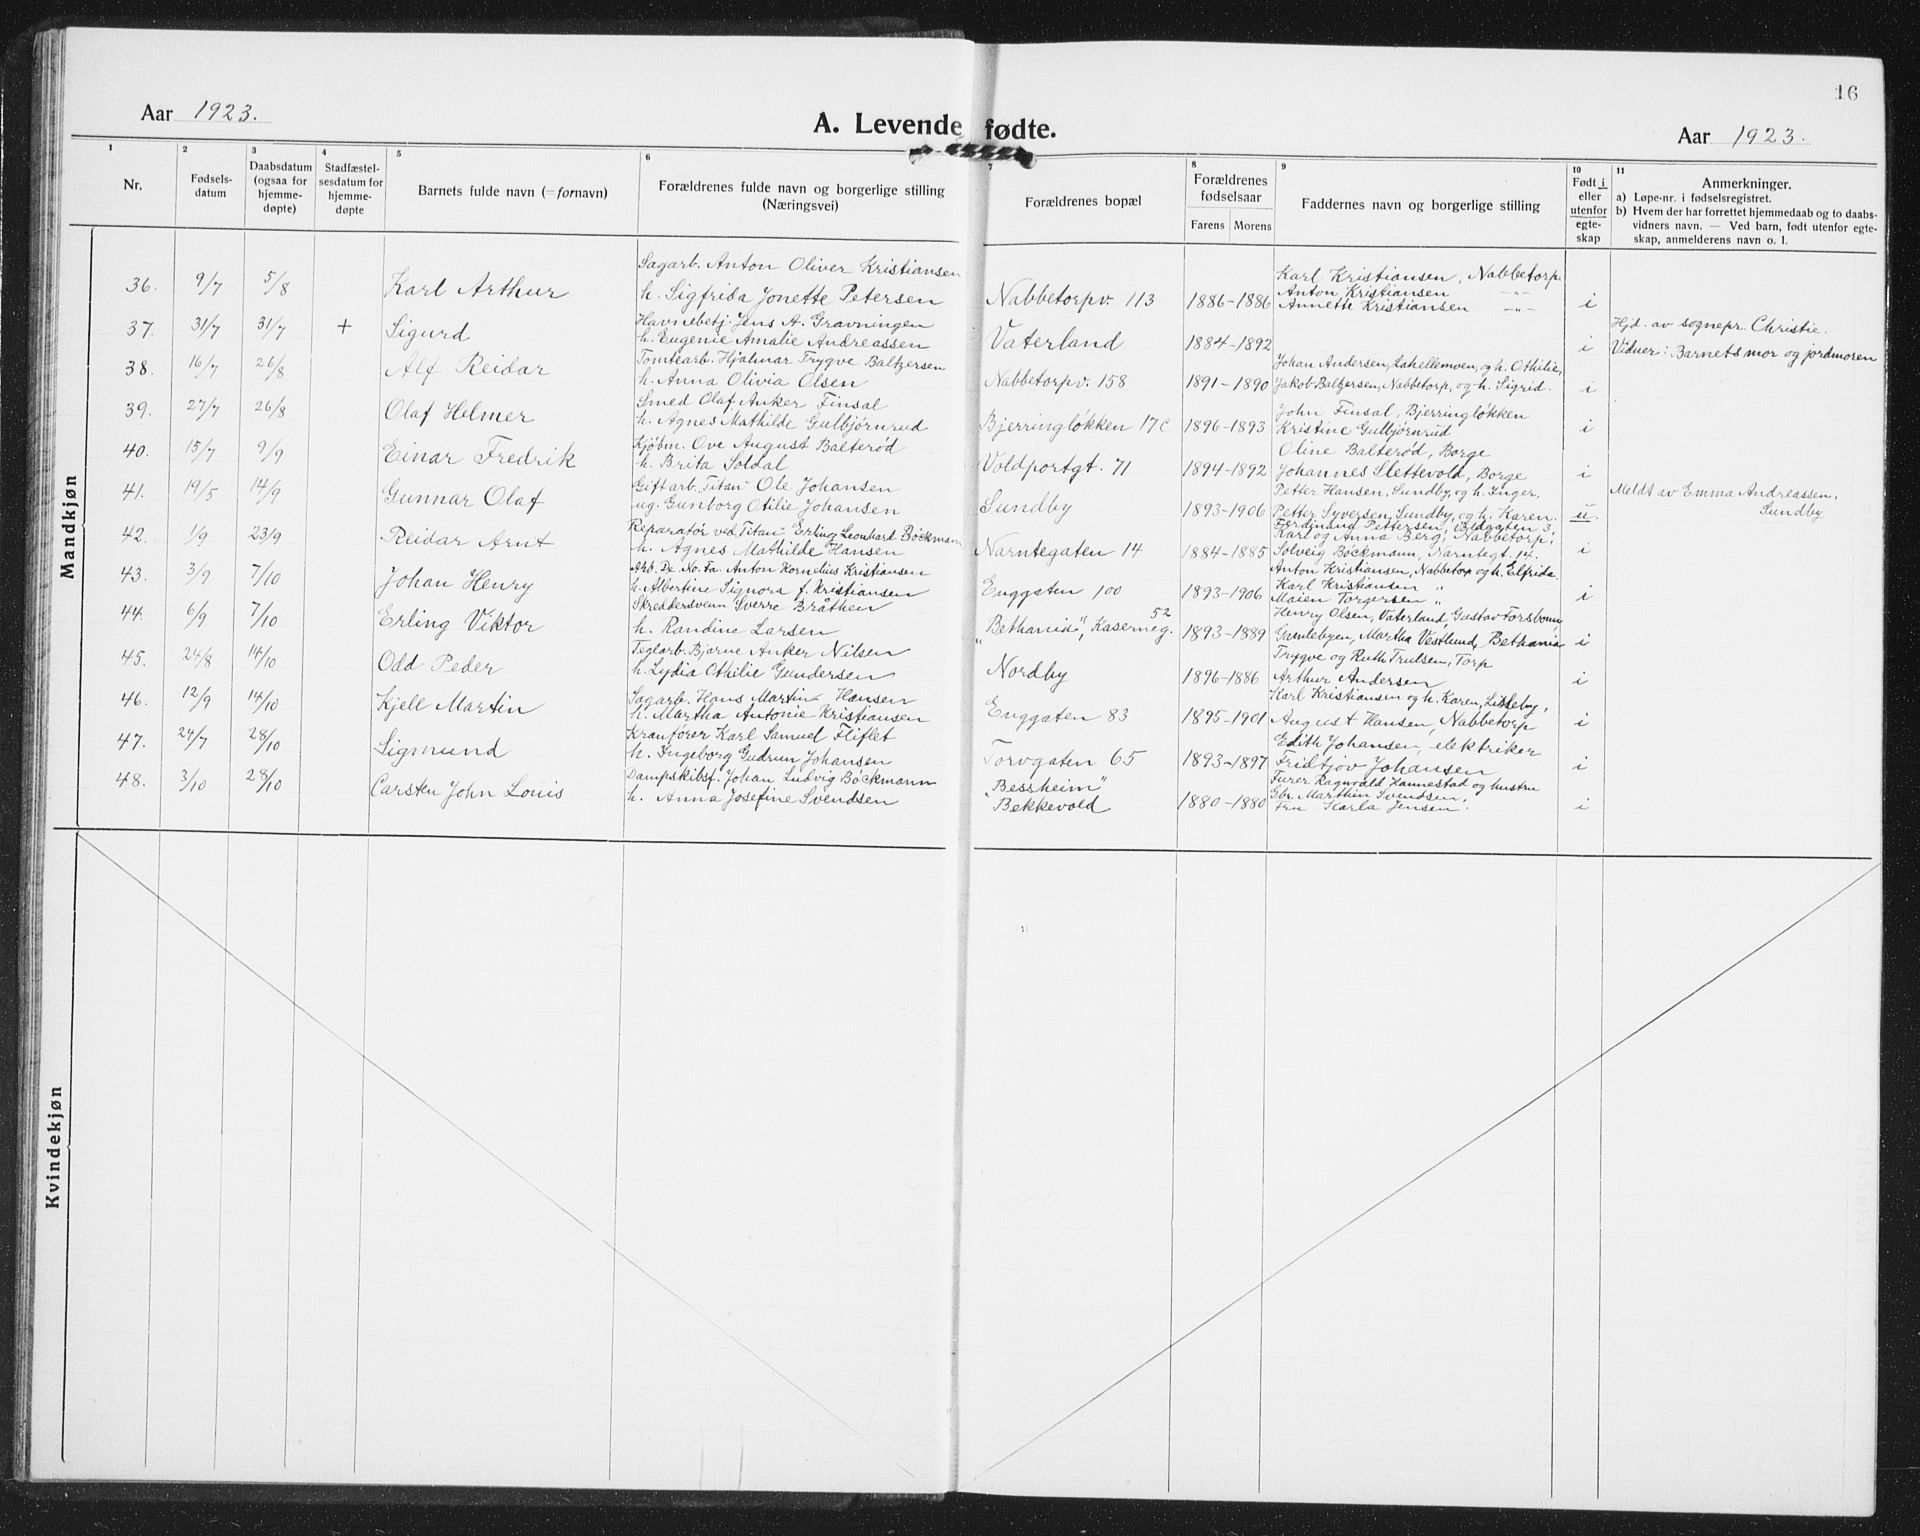 16
Aar 1923.
A. Levende fødte.
Aar 1923.
1 2 3 4 5 6 7 8 9 10 11
Nr.
Fødsels-
datum
Daabsdatum
(ogsaa for
hjemme-
døpte)
Stadfæstel-
sesdatum for
hjemme-
døpte
Barnets fulde navn (=fornavn)
Forældrenes fulde navn og borgerlige stilling
(Næringsvei)
Forældrenes bopæl
Forældrenes
fødselsaar
Farens Morens
Faddernes navn og borgerlige stilling
Født i
eller
utenfor
egte-
skap
Anmerkninger.
a) Løpe-nr. i fødselsregistret.
b) Hvem der har forrettet hjemmedaab og to daabs-
vidners navn. — Ved barn, født utenfor egte-
skap, anmelderens navn o. l.
Mandkjøn
Sagarb. Anton Oliver Kristiansen
36. 9/7 5/8 Karl Arthur
h. Sigfrida Jonette Petersen
Nabbetorpv. 113 1886-1886
Karl Kristiansen, Nabbetorp.
Anton Kristiansen -"-
Annette Kristiansen -"-
i
37. 31/7 31/7 + Sigurd
Havnebetj. Jens A. Gravningen
h. Eugenie Amalie Andreassen
Vaterland 1884-1892
i
Hjd. av sognepr. Christie.
Vidner: Barnets mor og jordmoren
38. 16/7 26/8 Alf Reidar
Tomtearb. Hjalmar Trygve Baltzersen
h. Anna Olivia Olsen
Nabbetorpv. 158 1891-1890
Johan Andersen, Lahellemoen, og h. Othilie,
Jakob Baltzersen, Nabbetorp, og h. Sigrid.
i
39. 27/7 26/8 Olaf Helmer
Smed Olaf Anker Finsal
h. Agnes Mathilde Gulbjørnrud
Bjerringløkken 17c 1896-1893
John Finsal, Bjerringløkken
Kristine Gulbjørnrud
i
40. 15/7 9/9 Einar Fredrik
Kjøbm. Ove August Balterød
h. Brita Soldal
Voldportgt. 71 1894-1892
Oline Balterød, Borge
Johannes Slettevold, Borge
i
41. 19/5 14/9 Gunnar Olaf
Giftarb. "Titan" Ole Johansen
ug. Gunborg Otilie Johansen
Sundby 1893-1906
Petter Hansen, Sundby, og h. Inger,
Petter Syversen, Sundby, og h. Karen.
u.
Meldt av Emma Andreassen,
Sundby
42. 1/9 23/9 Reidar Arnt
Reparatør ved "Titan" Erling Leonhart Bøckmann
h. Agnes Mathilde Hansen
Narntegaten 14 1884-1885
Ferdinand Pettersen, Oldgaten 3,
Karl og Anna Berg, Nabbetorp,
Solveig Bøckmann, Narntegt. 14.
i
43. 3/9 7/10 Johan Henry
Arb. De No. Fa. Anton Kornelius Kristiansen
h. Albertine Signora f. Kristiansen
Enggaten 100 1893-1906
Anton Kristiansen, Nabbetorp og h. Elfrida.
Karl Kristiansen "
Maien Torgersen "
i
44. 6/9 7/10 Erling Viktor
Skreddersvenn Sverre Bråthen
h. Randine Larsen
"Bethania", Kaserneg. 52 1893-1889
Henry Olsen, Vaterland, Gustav Forsbonn,
Gamlebyen, Martha Vestlund, Bethania
i
45. 24/8 14/10 Odd Peder
Teglarb. Bjarne Anker Nilsen
h. Lydia Othilie Gundersen
Nordby 1896-1886
Trygve og Ruth Trulsen, Torp
Arthur Andersen
i
46. 12/9 14/10 Kjell Martin
Sagarb. Hans Martin Hansen
h. Martha Antonie Kristiansen
Enggaten 83 1895-1901
Karl Kristiansen og h. Karen, Lisleby,
August Hansen, Nabbetorp
i
47. 24/7 28/10 Sigmund
Kranfører Karl Samuel Fliflet
h. Ingeborg Gudrun Johansen
Torvgaten 65 1893-1897
Edith Johansen, elektriker
Fridtjov Johansen
i
48. 3/10 28/10 Carsten John Louis
Dampskibsf. Johan Ludvig Bøckmann
h. Anna Josefine Svendsen
"Bessheim"
Bekkevold 1880-1880
Furer Ragnvald Hannestad og hustru
Gbr. Marthin Svendsen,
Fru Karla Jensen.
i
Kvindekjøn